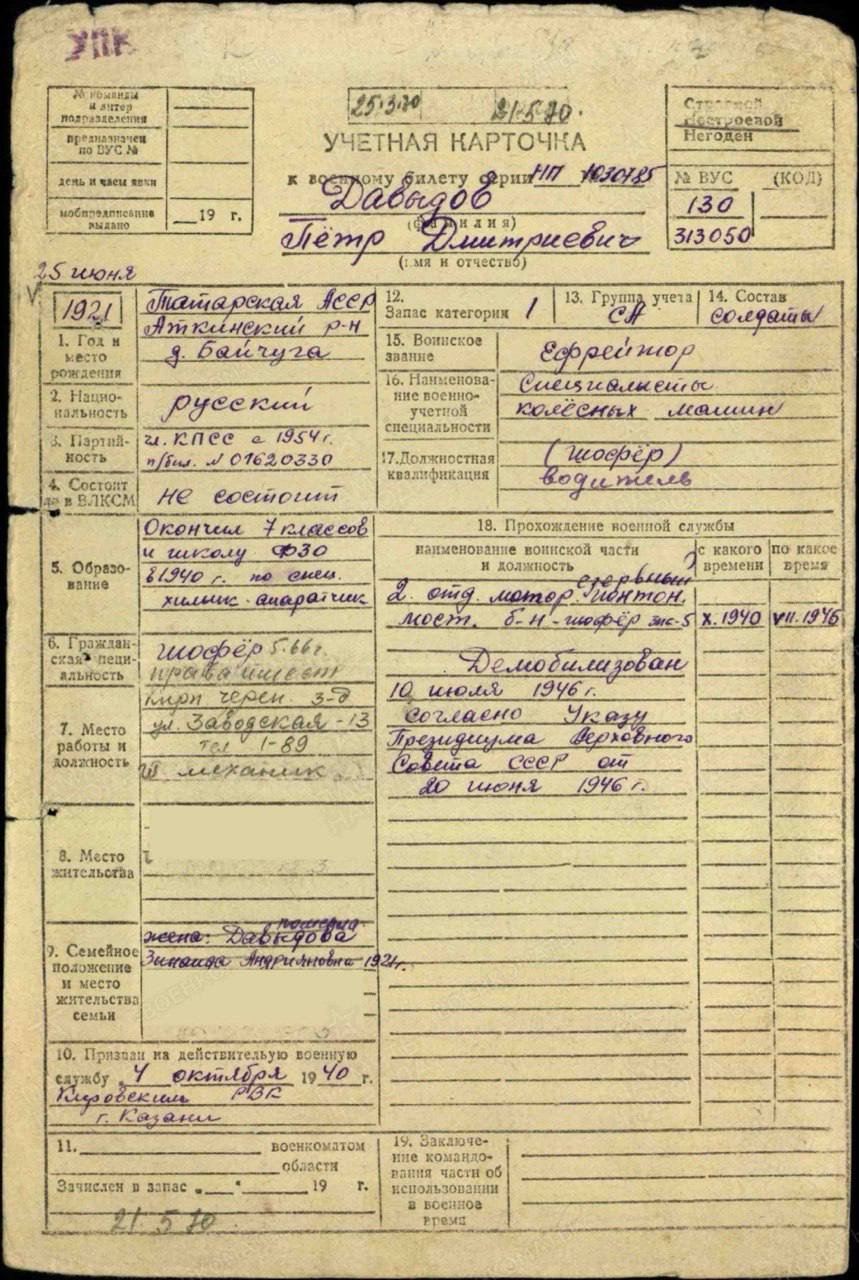 УПК
№ команды
и литер
подразделения
предназначен
по ВУС №
день и часы явки
мобпредписание
выдано
19 г.
25.3.70
21.5.70.
УЧЕТНАЯ КАРТОЧКА
к военному билету серии НП 1030785
Давыдов
(фамилия)
Пётр Дмитриевич
(имя и отчество)
Строевой
Нестроевой
Негоден
№ ВУС (КОД)
130
313050
25 июня
V
1921
1. Год и
место
рождения
Татарская АССР
Аткинский р-н
д. Байчуга
2. Нацио-
нальность
русский
3. Партий-
ность
чл. КПСС с 1954 г.
п/бил. № 01620330
4. Состоит
ли в ВЛКСМ
не состоит
5. Образо-
вание
Окончил 7 классов
и школу ФЗО
в 1940 г. по спец.
химик-апаратчик
6. Граждан-
ская специ-
альность
шофёр 5.66 г.
права имеет
7. Место
работы и
должность
кирп череп. з-д
ул. Заводская-13
тел 1-89
механик
8. Место
жительства
9. Семейное
положение
и место
жительства
семьи
померла
жена: Давыдова
Зинаида Андрияновна 1921 г.
10. Призван на действительную военную
службу „4 октября 1940 г.
Кировским РВК
г. Казани
11. военкоматом
области
Зачислен в запас „ “ 19 г.
21 5 70
12.
Запас категории 1
13. Группа учета
СА
14. Состав
солдаты
15. Воинское
звание
Ефрейтор
16. Наименова-
ние военно-
учетной
специальности
Специалисты
колёсных машин
17. Должностная
квалификация
(шофёр)
водитель
18. Прохождение военной службы
наименование воинской части
и должность
с какого
времени
по какое
время
2. отд. мотор. понтон.
мост. б-н-шофёр зис-5 X.1940 VII.1946
Демобилизован
10 июля 1946 г.
согласно Указу
Президиума Верховного
Совета СССР от
20 июня 1946 г.
19. Заключе-
ние командо-
вания части об
использовании
в военное
время